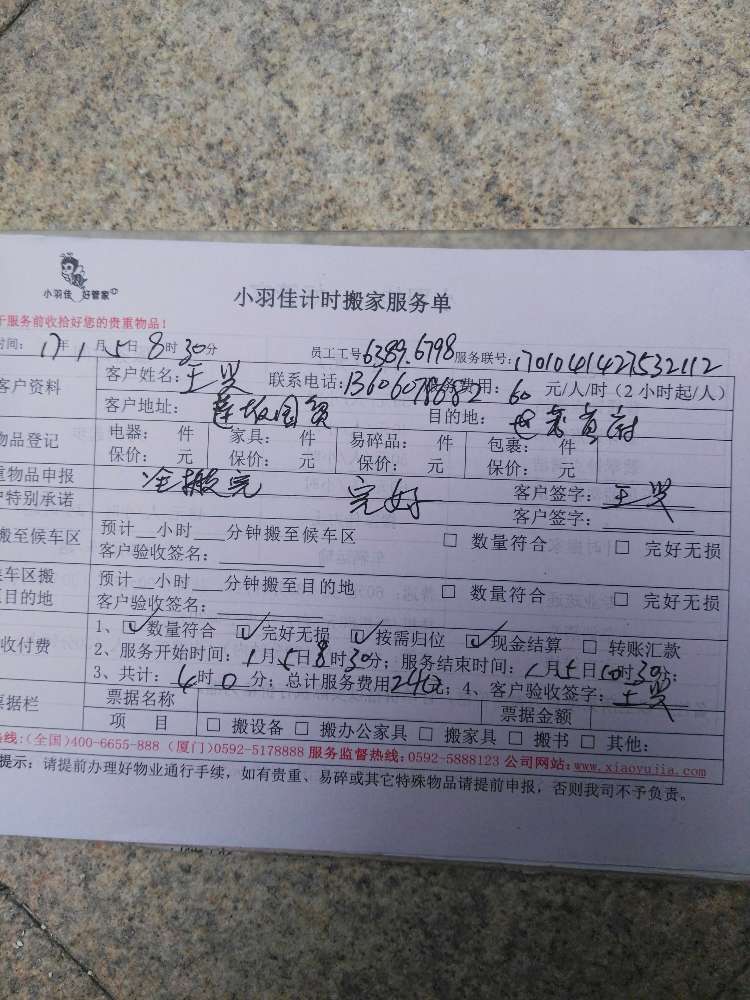 小羽佳 好管家
小羽佳计时搬家服务单
于服务前收拾好您的贵重物品！
时间：17年1月5日8时30分 员工工号6389.6798 服务联号：1701041427532112
客户资料 客户姓名：王 联系电话：服务费用：60 元/人/时（2 小时起/人）
客户地址：莲坂国贸 目的地：
物品登记 电器： 件 家具： 件 易碎品： 件 包裹： 件
保价： 元 保价： 元 保价： 元 保价： 元
重物品申报 全搬完 完好 客户签字：王
户特别承诺 客户签字：
搬至候车区 预计__小时___分钟搬至候车区 □ 数量符合 □ 完好无损
客户验收签名：
车区搬 预计__小时___分钟搬至目的地 □ 数量符合 □ 完好无损
目的地 客户验收签名：
收付费 1、☑数量符合 ☑完好无损 ☑按需归位 ☑现金结算 □ 转账汇款
2、服务开始时间：1月5日8时30分；服务结束时间：1月5日10时30分；
3、共计：4时0分；总计服务费用240元；4、客户验收签字：王
票据栏 票据名称 票据金额
项 目 □ 搬设备 □ 搬办公家具 □ 搬家具 □ 搬书 □ 其他：
线：(全国)400-6655-888 (厦门)0592-5178888 服务监督热线：0592-5888123 公司网站：www.xiaoyujia.com
提示：请提前办理好物业通行手续，如有贵重、易碎或其它特殊物品请提前申报，否则我司不予负责。